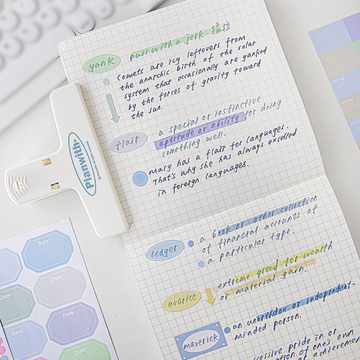 yank pull with a jerk
Comets are icy leftovers from
the anarchic birth of the solar
system that occasionally are yanked
by the forces of gravity toward
the sun.
flair a special or instinctive
aptitude or ability for doing
something well.
Mary has a flair for languages.
That's why she has always excelled
in foreign languages.
ledger a book or other collection
of financial accounts of
a particular type.
avarice extreme greed for wealth
or material gain.
maverick an unorthodox or independent-
minded person.
Planwith
Date
Date
Date